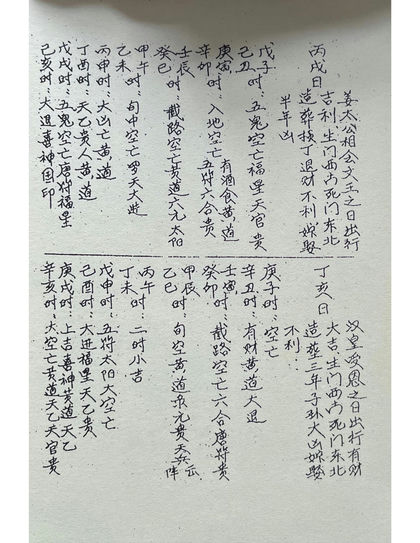 丙戌日
姜太公相会文王之日出行
吉利生门西方死门东北
造葬横丁退财不利嫁娶
半年凶
戊子时：五鬼空亡福星天官贵
己丑
庚寅时：入地空亡五符六合贵
辛卯 有酒食黄道
壬辰时：截路空亡黄道六元太阳
癸巳
甲午时：旬中空亡罗天大进
乙未
丙申时：大凶亡黄道
丁酉时：天乙贵人黄道
戊戌时：五鬼空亡唐符福星
己亥时：大退喜神国印
丁亥日
汉皇受恩之日出行有财
大吉生门西方死门东北
造葬三年子孙大凶嫁娶
不利
庚子时：空亡
辛丑时：有财黄道大退
壬寅时：截路空亡六合唐符贵
癸卯
甲辰时：旬空黄道
乙巳
丙午时：二时小吉
丁未
戊申时：五符太阳大空亡
己酉时：大进福星天乙贵
庚戌时：上吉喜神黄道天乙
辛亥时：大空亡黄道天乙天官贵